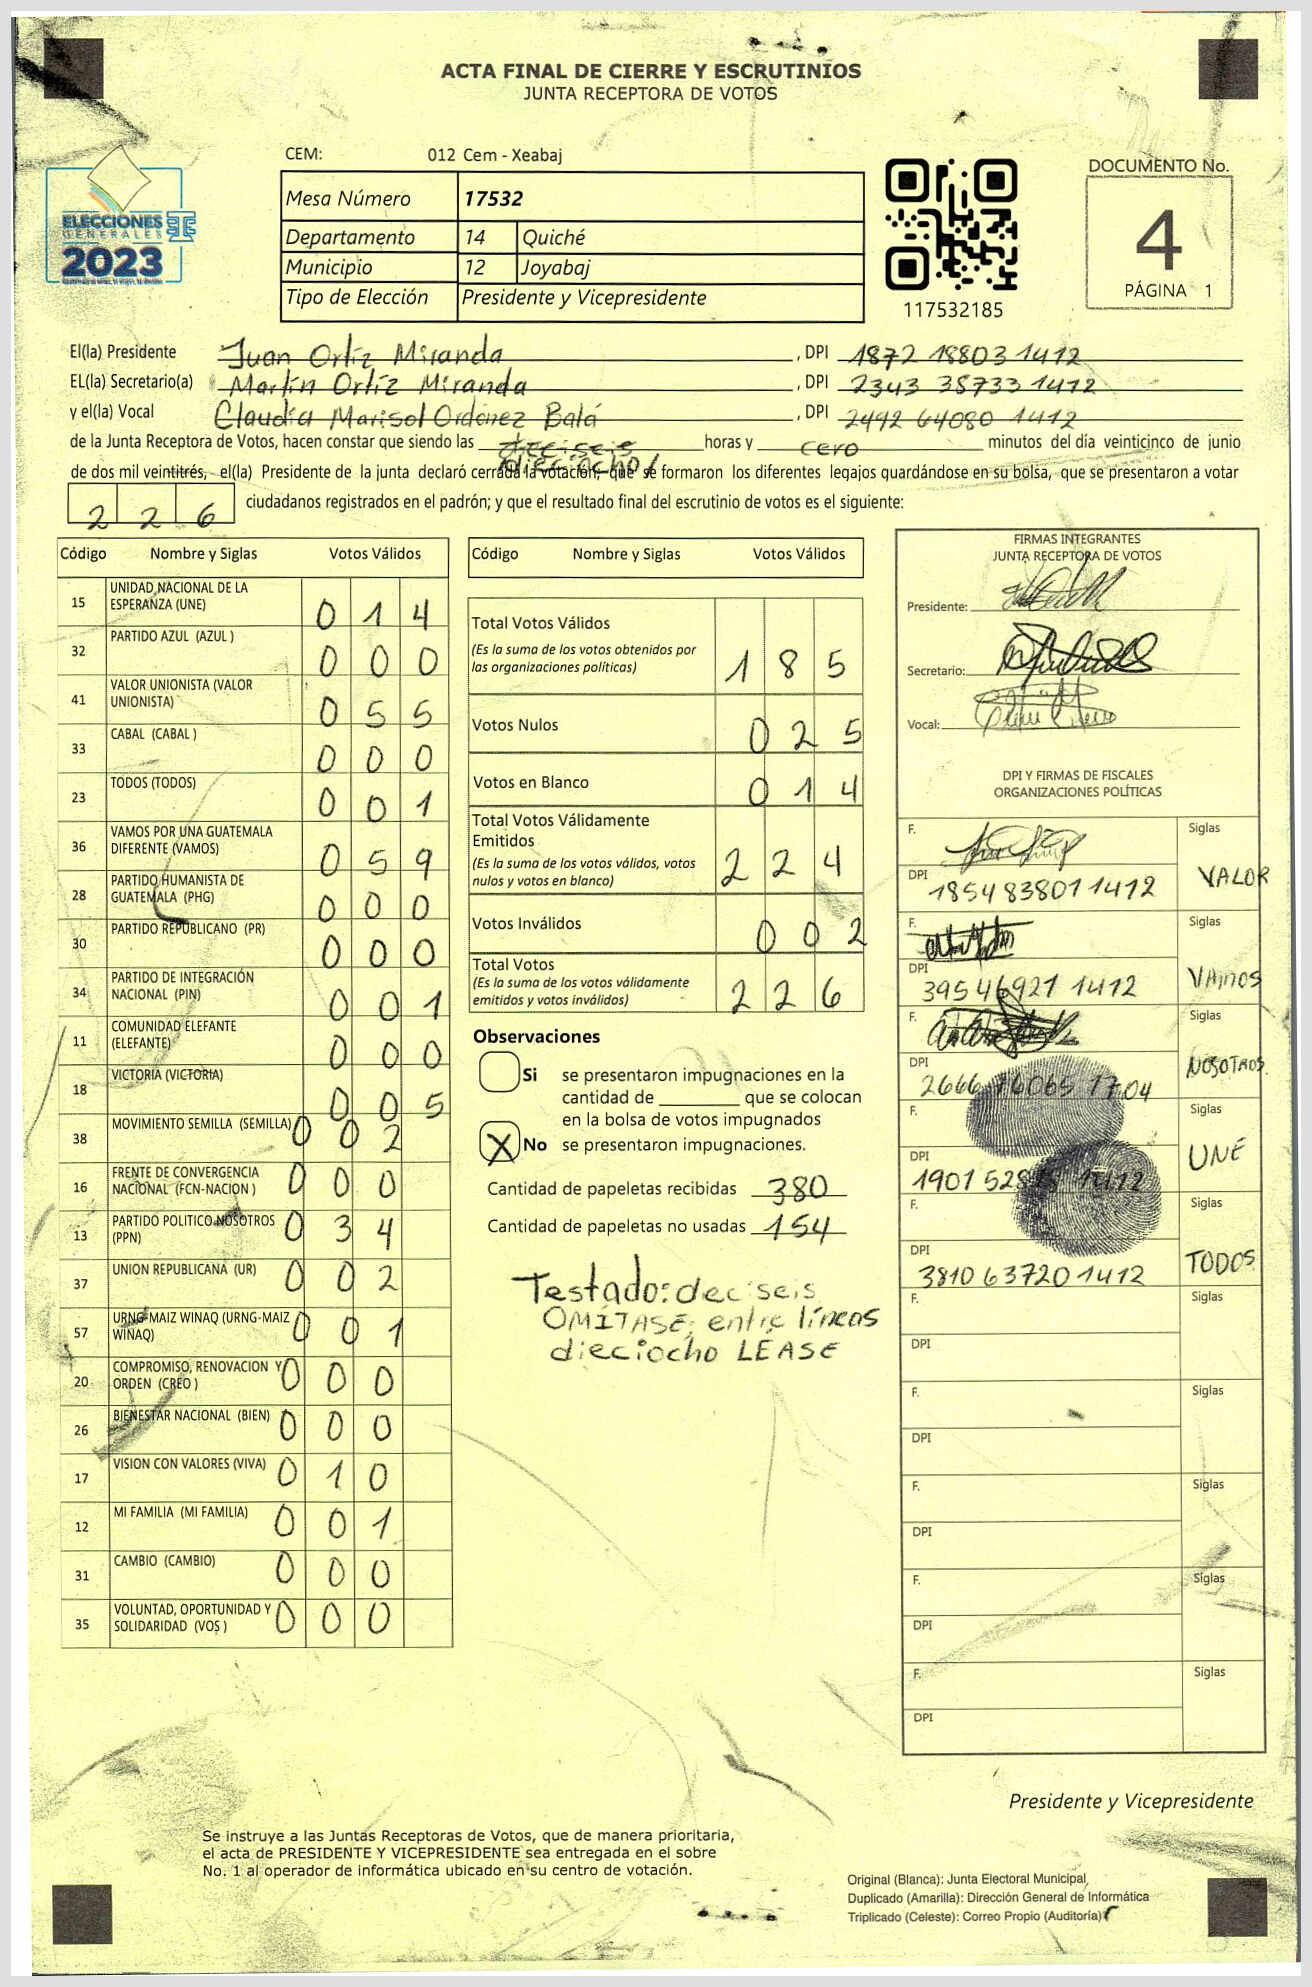 ACTA FINAL DE CIERRE Y ESCRUTINIOS
JUNTA RECEPTORA DE VOTOS
CEM: 012 Cem - Xeabaj
Mesa Número 17532
Departamento 14 Quiché
Municipio 12 Joyabaj
Tipo de Elección Presidente y Vicepresidente
ELECCIONES
GENERALES
2023
117532185
DOCUMENTO No.
4
PÁGINA 1
El(la) Presidente Juan Ortiz Miranda , DPI 1872 18803 1412
EL(la) Secretario(a) Martin Ortiz Miranda , DPI 2343 38733 1412
y el(la) Vocal Claudia Marisol Ordóñez Balá , DPI 2492 64080 1412
de la Junta Receptora de Votos, hacen constar que siendo las deciseis horas y cero minutos del día veinticinco de junio
dieciocho
de dos mil veintitrés, el(la) Presidente de la junta declaró cerrada la votación; que se formaron los diferentes legajos guardándose en su bolsa, que se presentaron a votar
226 ciudadanos registrados en el padrón; y que el resultado final del escrutinio de votos es el siguiente:
Código Nombre y Siglas Votos Válidos
15 UNIDAD NACIONAL DE LA ESPERANZA (UNE) 0 1 4
32 PARTIDO AZUL (AZUL ) 0 0 0
41 VALOR UNIONISTA (VALOR UNIONISTA) 0 5 5
33 CABAL (CABAL ) 0 0 0
23 TODOS (TODOS) 0 0 1
36 VAMOS POR UNA GUATEMALA DIFERENTE (VAMOS) 0 5 9
28 PARTIDO HUMANISTA DE GUATEMALA (PHG) 0 0 0
30 PARTIDO REPUBLICANO (PR) 0 0 0
34 PARTIDO DE INTEGRACIÓN NACIONAL (PIN) 0 0 1
11 COMUNIDAD ELEFANTE (ELEFANTE) 0 0 0
18 VICTORIA (VICTORIA) 0 0 5
38 MOVIMIENTO SEMILLA (SEMILLA) 0 0 2
16 FRENTE DE CONVERGENCIA NACIONAL (FCN-NACION ) 0 0 0
13 PARTIDO POLITICO NOSOTROS (PPN) 0 3 4
37 UNION REPUBLICANA (UR) 0 0 2
57 URNG-MAIZ WINAQ (URNG-MAIZ WINAQ) 0 0 1
20 COMPROMISO, RENOVACION Y ORDEN (CREO ) 0 0 0
26 BIENESTAR NACIONAL (BIEN) 0 0 0
17 VISION CON VALORES (VIVA) 0 1 0
12 MI FAMILIA (MI FAMILIA) 0 0 1
31 CAMBIO (CAMBIO) 0 0 0
35 VOLUNTAD, OPORTUNIDAD Y SOLIDARIDAD (VOS ) 0 0 0
Código Nombre y Siglas Votos Válidos
Total Votos Válidos 1 8 5
(Es la suma de los votos obtenidos por
las organizaciones políticas)
Votos Nulos 0 2 5
Votos en Blanco 0 1 4
Total Votos Válidamente
Emitidos 2 2 4
(Es la suma de los votos válidos, votos
nulos y votos en blanco)
Votos Inválidos 0 0 2
Total Votos
(Es la suma de los votos válidamente
emitidos y votos inválidos) 2 2 6
Observaciones
Si se presentaron impugnaciones en la
cantidad de ________ que se colocan
en la bolsa de votos impugnados
X No se presentaron impugnaciones.
Cantidad de papeletas recibidas 380
Cantidad de papeletas no usadas 154
Testado: deciseis
OMÍTASE; entre líneas
dieciocho LEASE
FIRMAS INTEGRANTES
JUNTA RECEPTORA DE VOTOS
Presidente:
Secretario:
Vocal:
DPI Y FIRMAS DE FISCALES
ORGANIZACIONES POLÍTICAS
F. Siglas
DPI 1854 83801 1412 VALOR
F. Siglas
DPI 3954 6921 1412 VAMOS
F. Siglas
DPI 2666 16065 1704 NOSOTROS
F. Siglas
DPI 1901 1412 UNE
F. Siglas
DPI 3810 63720 1412 TODOS
F. Siglas
DPI
F. Siglas
DPI
F. Siglas
DPI
F. Siglas
DPI
F. Siglas
DPI
Presidente y Vicepresidente
Se instruye a las Juntas Receptoras de Votos, que de manera prioritaria,
el acta de PRESIDENTE Y VICEPRESIDENTE sea entregada en el sobre
No. 1 al operador de informática ubicado en su centro de votación.
Original (Blanca): Junta Electoral Municipal
Duplicado (Amarilla): Dirección General de Informática
Triplicado (Celeste): Correo Propio (Auditoría)